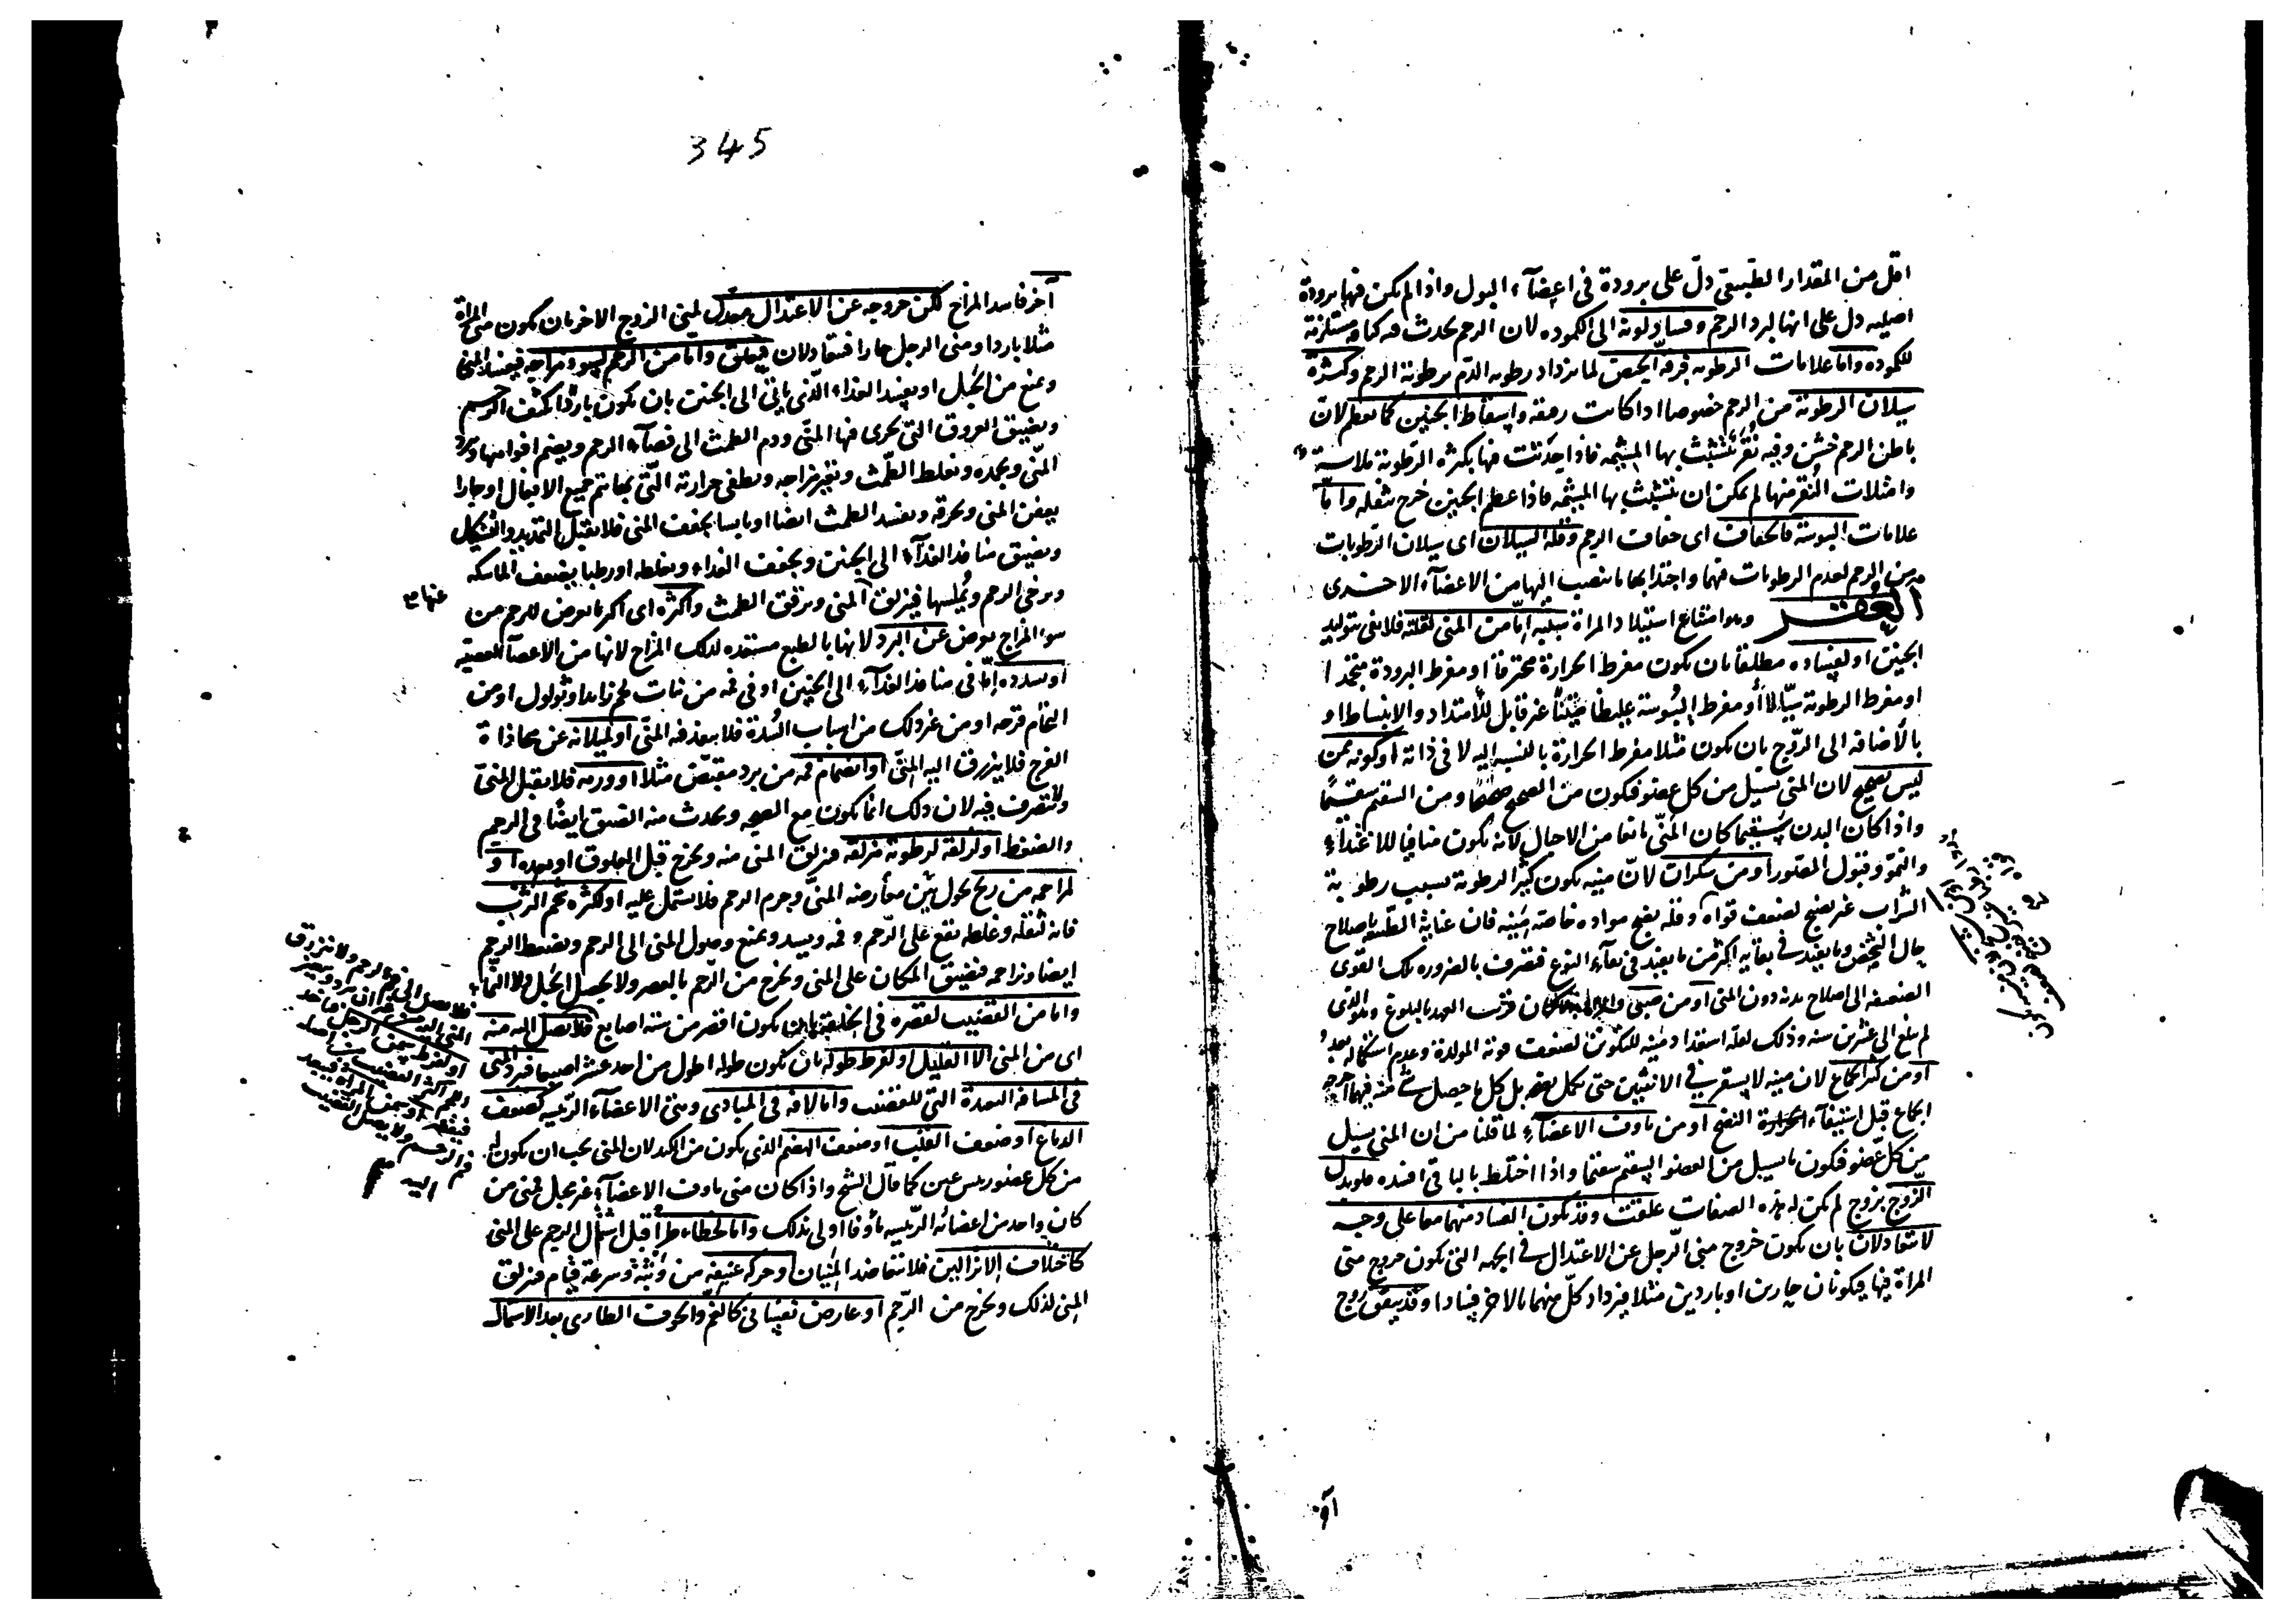 اقل من المقدار الطبيعي دلّ على برودة في اعضآء البول واذا لم يكن فيها برودة
اصليه دل على انها لبرد الرحم وفساد لونه الى الكموده لان الرحم يحدث فيه
للكموده واما علامات الرطوبه فرقه الحيض لما يزداد رطوبه الدم برطوبة الرحم وكثرة
سيلان الرطوبة من الرحم خصوصا اذا كانت رقيقه واسقاط الجنين كما يعظم لان
باطن الرحم خشن وفيه نقر تتشبث بها المشيمه فاذا حدثت فيها بكثره الرطوبة ملاسة
وامتلات النقر منها لم يمكن ان تتشبث بها المشيمه فاذا عظم الجنين خرج بثقله واما
علامات اليبوسة فالجفاف اى جفاف الرحم وقلة السيلان اى سيلان الرطوبات
من الرحم لعدم الرطوبات فيها واجتذابها ما ينصب اليها من الاعضآء الاخرى
العقر وهو امتناع استيلاد المراة سببه امّا من المنى لقلته فلا يفى بتوليد
الجنين او لفساده مطلقا بان يكون مفرط الحرارة محترقا او مفرط البرودة منجمدا
او مفرط الرطوبة سيّالا او مفرط اليبوسة غليظا خشنا غير قابل للامتداد والانبساط او
بالاضافه الى الزوج بان يكون مثلا مفرط الحرارة بالنسبه اليه لا فى ذاته او كونه ممن
ليس بصحيح لان المنى يسيل من كل عضو فيكون من الصحيح صحيحا ومن السقيم سقيما
واذا كان البدن سقيما كان المنى مانعا من الاحبال لانه يكون منافيا للاغتذاء
والنمو وقبول المقدور او من سكران لان منيه يكون كثير الرطوبة بسبب رطوبة
الشراب غير نضيج لضعف قواه وقلة نضج مواده خاصة منيه فان عناية الطبيعة باصلاح
حال الشخص وما يفيد في بقائه اكثر من ما يفيد فى بقآء النوع فتصرف بالضروره تلك القوى
الضعيفه الى اصلاح بدنه دون المنى او من صبى كان قريب العهد بالبلوغ وهو الذى
لم يبلغ الى عشرين سنه وذلك لقلة استعداد منيه للتكون لضعف قوته المولدة وعدم استكماله بعد
او من كثير الجماع لان منيه لا يستقر في الانثيين حتى يكمل نضجه بل كل ما حصل شئ منه فيهما اخرجه
الجماع قبل استيفآء الحرارة النضج او من ماوف الاعضآء لما قلنا من ان المنى يسيل
من كل عضو فيكون ما يسيل من العضو السقيم سقيما واذا اختلط بالباقى افسده فلو بدل
الزوج بزوج لم يكن له هذه الصفات علقت وقد يكون الفساد منهما معا على وجه
لا يتعادلان بان يكون خروج منى الرجل عن الاعتدال في الجهه التى يكون خروج منى
المراة فيها فيكونان حارين او باردين مثلا فيزداد كل منهما بالاخر فسادا وقد يتفق زوج
345
آخر فاسد المزاج لكن خروجه عن الاعتدال معدل لمنى الزوج الاخر بان يكون منى المراة
مثلا باردا ومنى الرجل حارا فيتعادلان فيعلق وامّا من الرحم لسوء مزاجه فيفسد المنى
ويمنع من الحبل او يفسد الغذاء الذى ياتى الى الجنين بان يكون باردا يكثف الرحم
ويضيق العروق التى يجرى فيها المنى ودم الطمث الى فضآء الرحم ويضم افواهها ويبرد
المنى ويجمده ويغلظ الطمث ويغير مزاجه ويطفى حرارته التى بها تتم جميع الافعال او حارا
يعفن المنى ويحرقه ويفسد الطمث ايضا او يابسا يجفف المنى فلا يقبل التمديد والتشكيل
ويضيق منافذ الغذآء الى الجنين ويجفف الغذاء ويغلظه او رطبا يضعف الماسكه
ويرخى الرحم ويملسها فيزلق المنى ويرقق الطمث واكثره اى اكثر ما يعرض للرحم من
سوء المزاج يعرض عن البرد لانها بالطبع مستعده لذلك المزاج لانها من الاعضآء العصبية
او لسدده امّا فى منافذ الغذآء الى الجنين او فى فمه من نبات لحم زايد او ثولول او من
التحام قرحه او من غير ذلك من اسباب السدة فلا ينفذ فيه المنى او لميلانه عن محاذاة
الفرج فلا ينزرق اليه المنى او انضمام فمه من برد مقبض مثلا او ورم فلا يقبل المنى
ولا يتصرف فيه لان ذلك انما يكون مع الصحه ويحدث منه الضيق ايضا فى الرحم
والضغط او لزلقه لرطوبة مزلقه فيزلق المنى منه ويخرج قبل العلوق او بعده او
لمزاحمه من ريح يحول بين المنى وجرم الرحم فلا يشتمل عليه او لكثرة شحم الثرب
فانه لثقله وغلظه يقع على الرحم وفمه ويسد ويمنع وصول المنى الى الرحم ويضغط الرحم
ايضا ويزاحمه فيضيق المكان على المنى ويخرج من الرحم بالعصر ولا يحصل الحبل
واما من القضيب لقصره فى الخلقة بان يكون اقصر من ستة اصابع فلا يصل اليه منه
اى من المنى الا القليل او لفرط طوله بان يكون طوله اطول من احد عشر اصبعا فيبرد المنى
فى المسافه البعيدة التى للقضيب واما لافة فى المبادى وهى الاعضآء الرئيسه كضعف
الدماغ او ضعف القلب او ضعف الهضم الذى يكون من الكبد لان المنى يجب ان يكون له
من كل عضو رئيس عين كما قال الشيخ واذا كان منى ماوف الاعضآء غير محبل فمنى من
كان واحد من اعضائه الرئيسه ماوفا اولى بذلك واما لخطاء طرأ قبل اشتمال الرحم على المنى
كاختلاف الانزالين فلا يتعاضد المنيان وحركة عنيفة من وثبة وسرعة قيام فيزلق
المنى لذلك ويخرج من الرحم او عارض نفسانى كالغم والخوف الطارى بعد الاشتمال